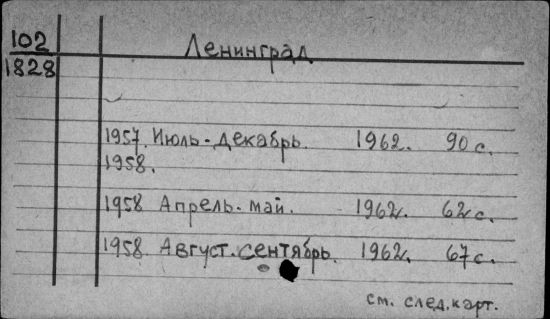 102
1828
Ленинград
1957. Июль-декабрь. 1962. 90 с.
1958.
1958 Апрель-май. 1962. 62 с.
1958 Август-сентябрь. 1962. 67 с.
см. след. карт.